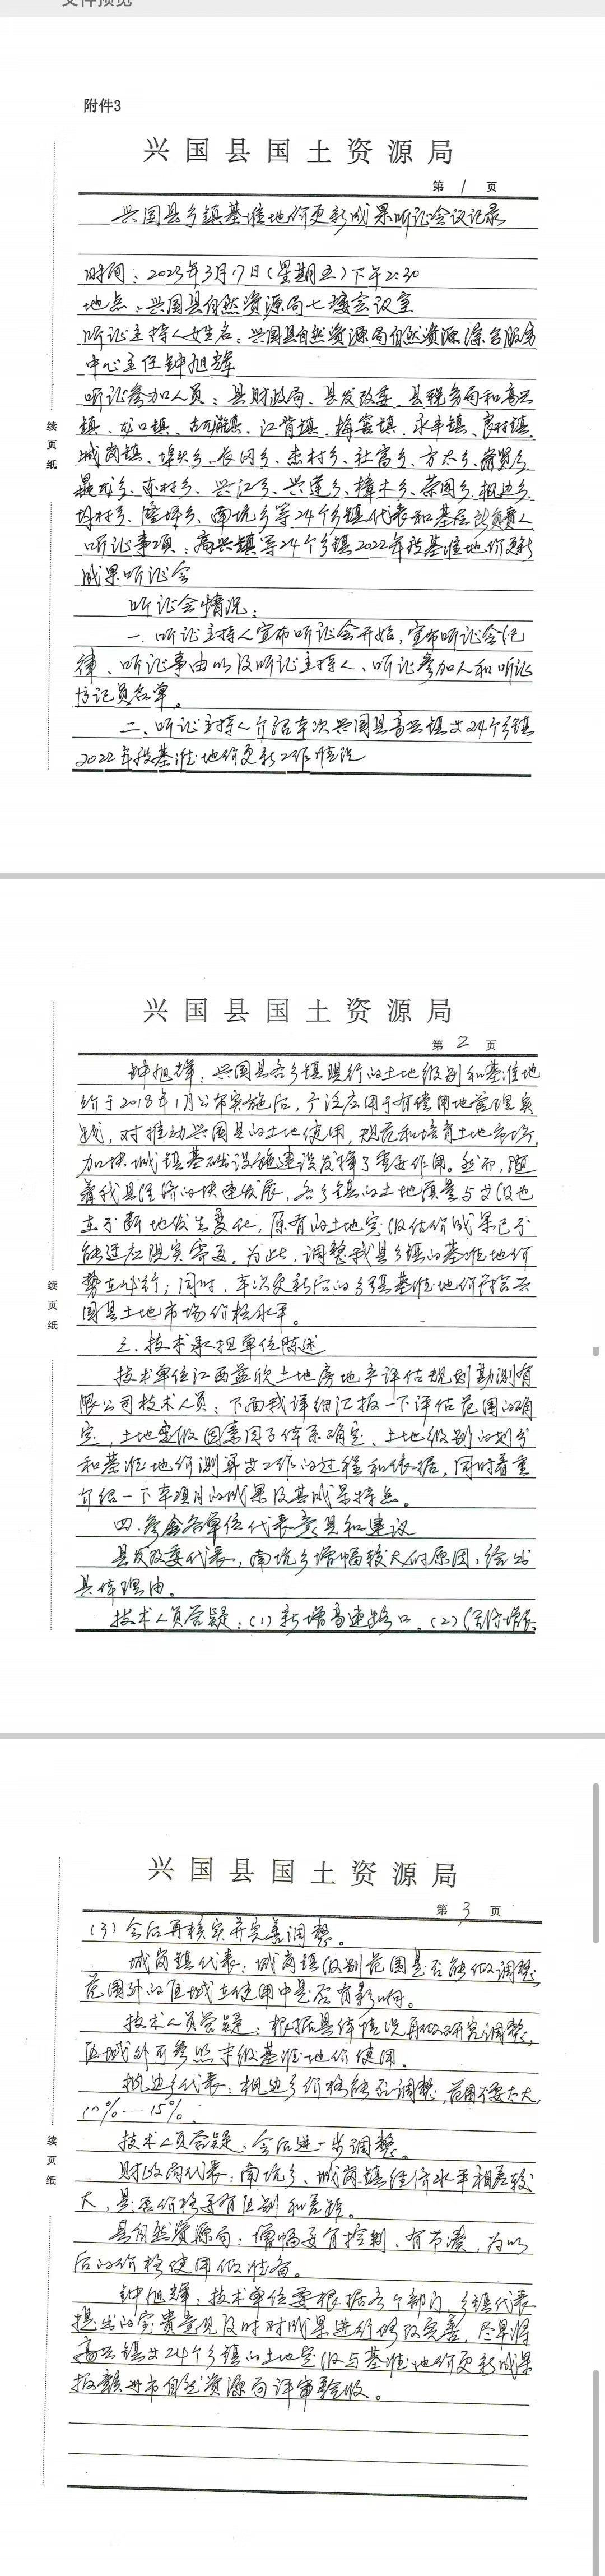 文件预览
附件3
兴国县国土资源局
第 1 页
兴国县乡镇基准地价更新成果听证会议记录
时间：2023年3月17日(星期五)下午2:30
地点：兴国县自然资源局七楼会议室
听证主持人姓名：兴国县自然资源局自然资源综合服务
中心主任钟旭辉
听证参加人员：县财政局、县发改委、县税务局和高兴
镇、龙口镇、古龙岗镇、江背镇、梅窖镇、永丰镇、良村镇、
城岗镇、埠头乡、长冈乡、杰村乡、社富乡、方太乡、崇贤乡、
鼎龙乡、东村乡、兴江乡、兴莲乡、樟木乡、茶园乡、枫边乡、
均村乡、隆坪乡、南坑乡等24个乡镇代表和基层所负责人
听证事项：高兴镇等24个乡镇2022年段基准地价更新
成果听证会
听证会情况：
一、听证主持人宣布听证会开始，宣布听证会纪
律、听证事由以及听证主持人、听证参加人和听证
记员名单。
二、听证主持人介绍本次兴国县高兴镇等24个乡镇
2022年段基准地价更新工作情况
续页纸
兴国县国土资源局
第 2 页
钟旭辉：兴国县各乡镇现行的土地级别和基准地
价于2018年1月公布实施后，广泛应用于有偿用地管理实
践，对推动兴国县的土地使用，规范和培育土地市场，
加快城镇基础设施建设发挥了重要作用。然而，随
着我县经济的快速发展，各乡镇的土地质量与等级也
在不断地发生变化，原有的土地定级估价成果已不
能适应现实需要。为此，调整我县乡镇的基准地价
势在必行；同时，本次更新后的乡镇基准地价符合兴
国县土地市场价格水平。
三、技术承担单位陈述
技术单位江西益欣土地房地产评估规划勘测有
限公司技术人员：下面我详细汇报一下评估范围的确
定，土地定级因素因子体系确定、土地级别的划分
和基准地价测算等工作的过程和依据，同时着重
介绍一下本项目的成果及其成果特点。
四、参会各单位代表意见和建议
县发改委代表：南坑乡增幅较大的原因，给出
具体理由。
技术人员答疑：(1)新增高速路口。(2)经济增长
续页纸
兴国县国土资源局
第 3 页
(3)会后再核实并完善调整。
城岗镇代表：城岗镇级别范围是否能做调整，
范围外的区域在使用中是否有影响。
技术人员答疑：根据具体情况再做研究调整，
区域外可参照末级基准地价使用。
枫边乡代表：枫边乡价格能否调整，范围不要太大，
10%—15%。
技术人员答疑：会后进一步调整。
财政局代表：南坑乡、城岗镇经济水平相差较
大，是否价格要有区别和差距。
县自然资源局：增幅要有控制、有节凑，为以
后的价格使用做准备。
钟旭辉：技术单位要根据各个部门、乡镇代表
提出的宝贵意见及时对成果进行修改完善，尽早将
高兴镇等24个乡镇的土地定级与基准地价更新成果
报赣州市自然资源局评审验收。
续页纸